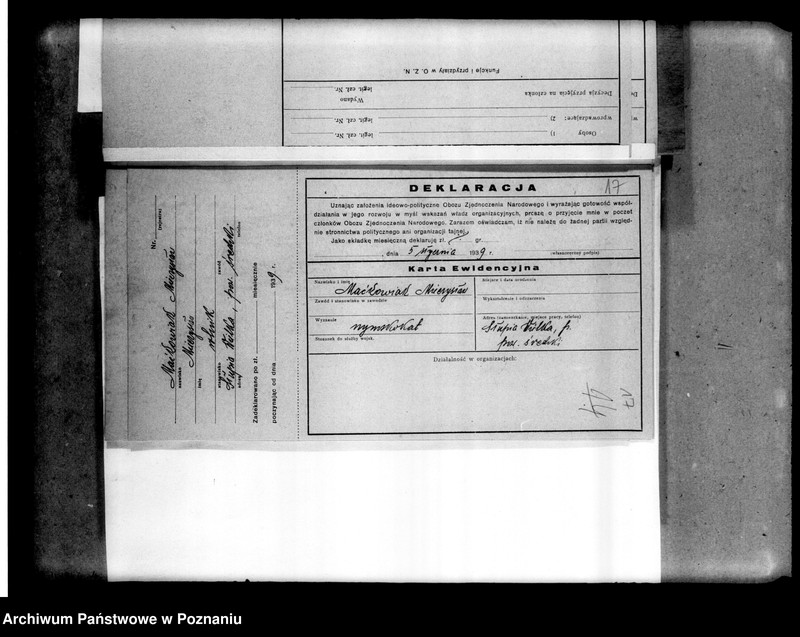 Funkcje i przydziały w O. Z. N.
Decyzja przyjęcia na członka
Wydano
legit. czł. Nr.
Osoby 1) legit. czł. Nr.
wprowadzające: 2) legit. czł. Nr.
Nr. legitymacji
Maćkowiak Mieczysław
nazwisko
Mieczysław
imię
rolnik
stanowisko zawód
Słupia Wielka, pow. średzki
adres telefon
Zadeklarowano po zł. miesięcznie
poczynając od dnia 1939 r.
17
DEKLARACJA
Uznając założenia ideowo-polityczne Obozu Zjednoczenia Narodowego i wyrażając gotowość współ-
działania w jego rozwoju w myśl wskazań władz organizacyjnych, proszę o przyjęcie mnie w poczet
członków Obozu Zjednoczenia Narodowego. Zarazem oświadczam, iż nie należę do żadnej partii względ-
nie stronnictwa politycznego ani organizacji tajnej.
Jako składkę miesięczną deklaruję zł. gr.
dnia 5 stycznia 1939 r. (własnoręczny podpis)
Karta Ewidencyjna
Nazwisko i imię
Maćkowiak Mieczysław
Miejsce i data urodzenia
Zawód i stanowisko w zawodzie
Wykształcenie i odznaczenia
Wyznanie
rzymskokat
Adres (zamieszkanie, miejsce pracy, telefon)
Słupia Wielka, p.
pow. średzki
Stosunek do służby wojsk.
Działalność w organizacjach:
Archiwum Państwowe w Poznaniu